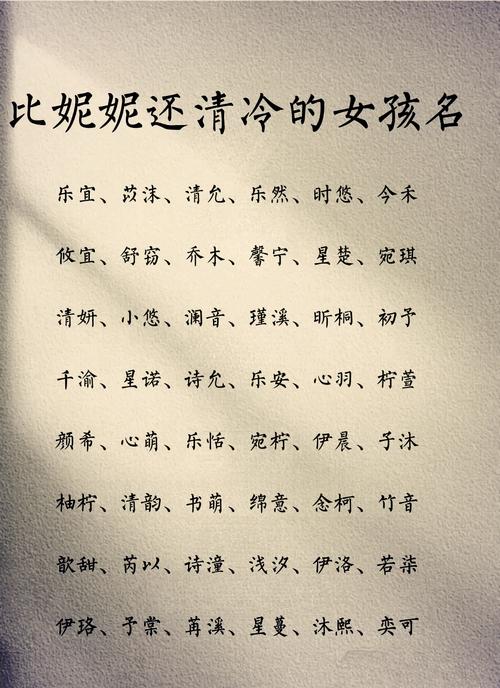 比妮妮还清冷的女孩名
乐宜、苡沫、清允、乐然、时悠、今禾
攸宜、舒窈、乔木、馨宁、星楚、宛琪
清妍、小悠、澜音、瑾溪、昕桐、初予
千渝、星诺、诗允、乐安、心羽、柠萱
颜希、心萌、乐恬、宛柠、伊晨、子沐
柚柠、清韵、书萌、绵意、念柯、竹音
歆甜、芮以、诗潼、浅汐、伊洛、若柒
伊珞、予棠、苒溪、星蔓、沐熙、奕可